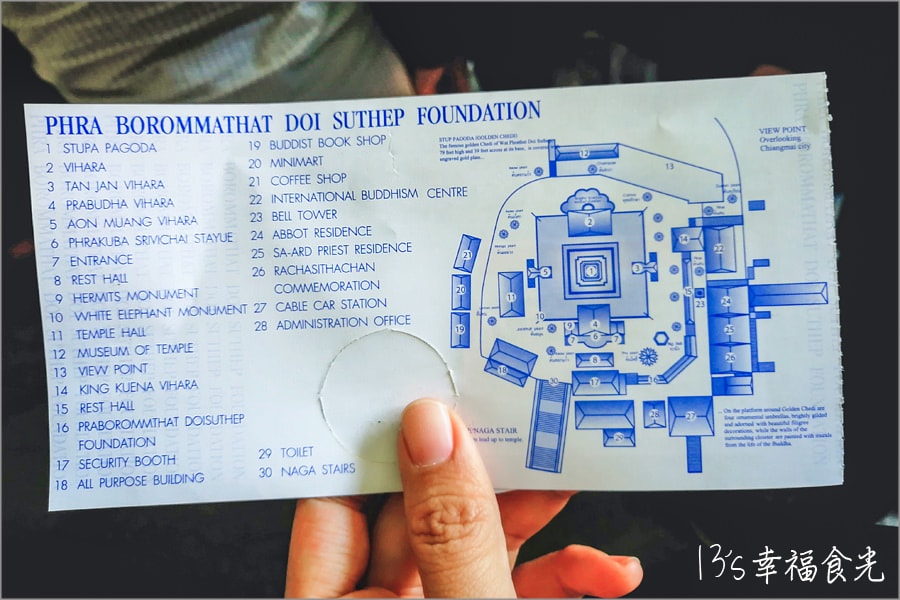 PHRA BOROMMATHAT DOI SUTHEP FOUNDATION
1 STUPA PAGODA
2 VIHARA
3 TAN JAN VIHARA
4 PRABUDHA VIHARA
5 AON MUANG VIHARA
6 PHRAKUBA SRIVICHAI STAYUE
7 ENTRANCE
8 REST HALL
9 HERMITS MONUMENT
10 WHITE ELEPHANT MONUMENT
11 TEMPLE HALL
12 MUSEUM OF TEMPLE
13 VIEW POINT
14 KING KUENA VIHARA
15 REST HALL
16 PRABOROMMTHAT DOISUTHEP
FOUNDATION
17 SECURITY BOOTH
18 ALL PURPOSE BUILDING
19 BUDDIST BOOK SHOP
20 MINIMART
21 COFFEE SHOP
22 INTERNATIONAL BUDDHISM CENTRE
23 BELL TOWER
24 ABBOT RESIDENCE
25 SA-ARD PRIEST RESIDENCE
26 RACHASITHACHAN
COMMEMORATION
27 CABLE CAR STATION
28 ADMINISTRATION OFFICE
29 TOILET
30 NAGA STAIRS
STUP PAGODA (GOLDEN CHEDI)
The famous golden Chedi of Wat Phrathat Doi Suthep
79 feet high and 39 feet across at its base, is covered
engraved gold plate...
VIEW POINT
Overlooking
Chiangmai city
12
13
2
14
22
21
5
1
3
20
11
15
23
24
10
9
4
8
6
7
7
19
25
18
8
26
30
17
16
28
27
29
/NAGA STAIR
lead up to temple.
... On the platform around Golden Chedi are
four ornamental umbrellas, brightly gilded
and adorned with beautiful filigree
decorations, while the walls of the
surrounding cloister are painted with murals
from the life of the Buddha.
13's 幸福食光